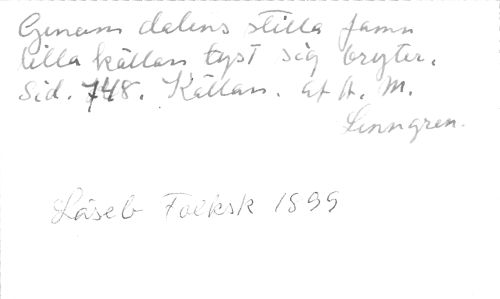 Genom dalens stilla famn
lilla källan tyst sig bryter.
Sid. 748. Källan. af A. M.
Lenngren.
Läseb Folksk 1899